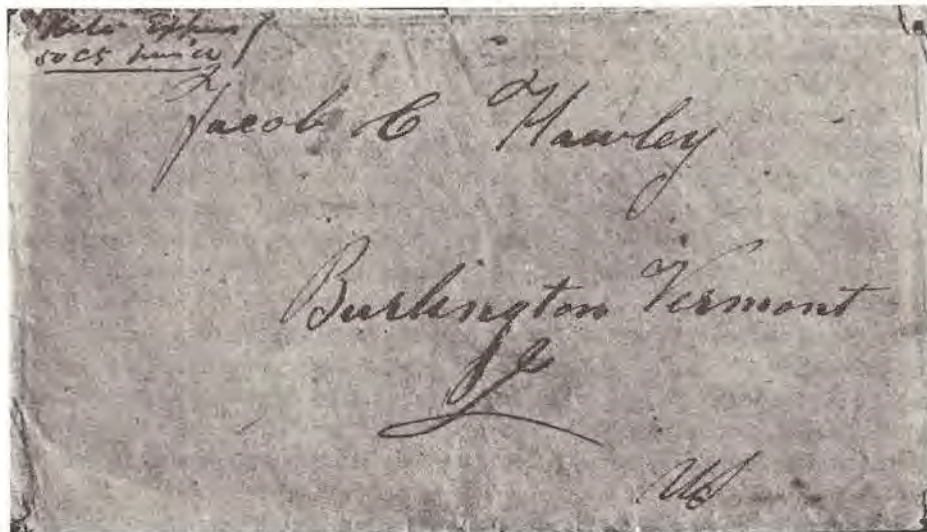 50 Cs
Jacob C Hawley
Burlington Vermont
US